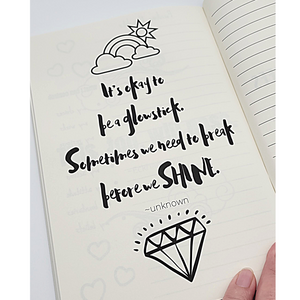 It's okay to
be a glowstick.
Sometimes we need to break
before we SHINE.
~unknown